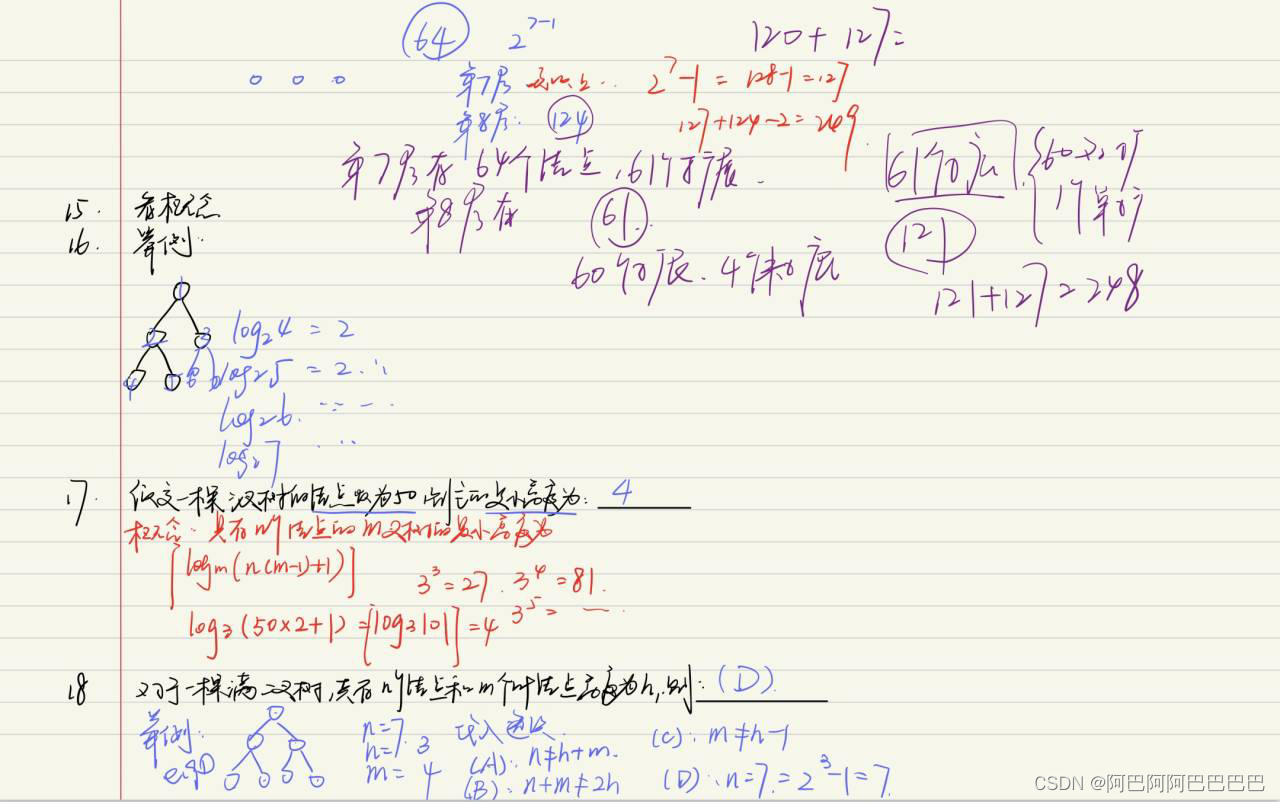 64 2^7-1 120+127=
第7层 及以上.. 2^7-1=128-1=127
第8层: 124 127+124-2=249
第7层有64个结点,61个扩展.
第8层有 61 60个扩展.4个未扩展
61个扩展 { 60双扩 1个单扩
121
121+127=248
15. 看概念
16. 举例:
1
2 3
4 5 6
log₂4=2
log₂5=2.∵
log₂6. ……
log₂7 …
17. 假定一棵三叉树的结点数为50,则它的最小高度为: 4
概念:具有n个结点的m叉树的最小高度为
⌈logm(n(m-1)+1)⌉ 3^3=27. 3^4=81.
log₃(50×2+1)=⌈log₃101⌉=4 3^5= ….
18 对于一棵满二叉树,共有n个结点和m个叶结点高度为h,则: (D)
举例: n=7. 代入选项. (C): m≠h-1
h=3 (A): n≠h+m.
m=4 (B): n+m≠2h (D): n=7=2^3-1=7.
CSDN @阿巴阿阿巴巴巴巴